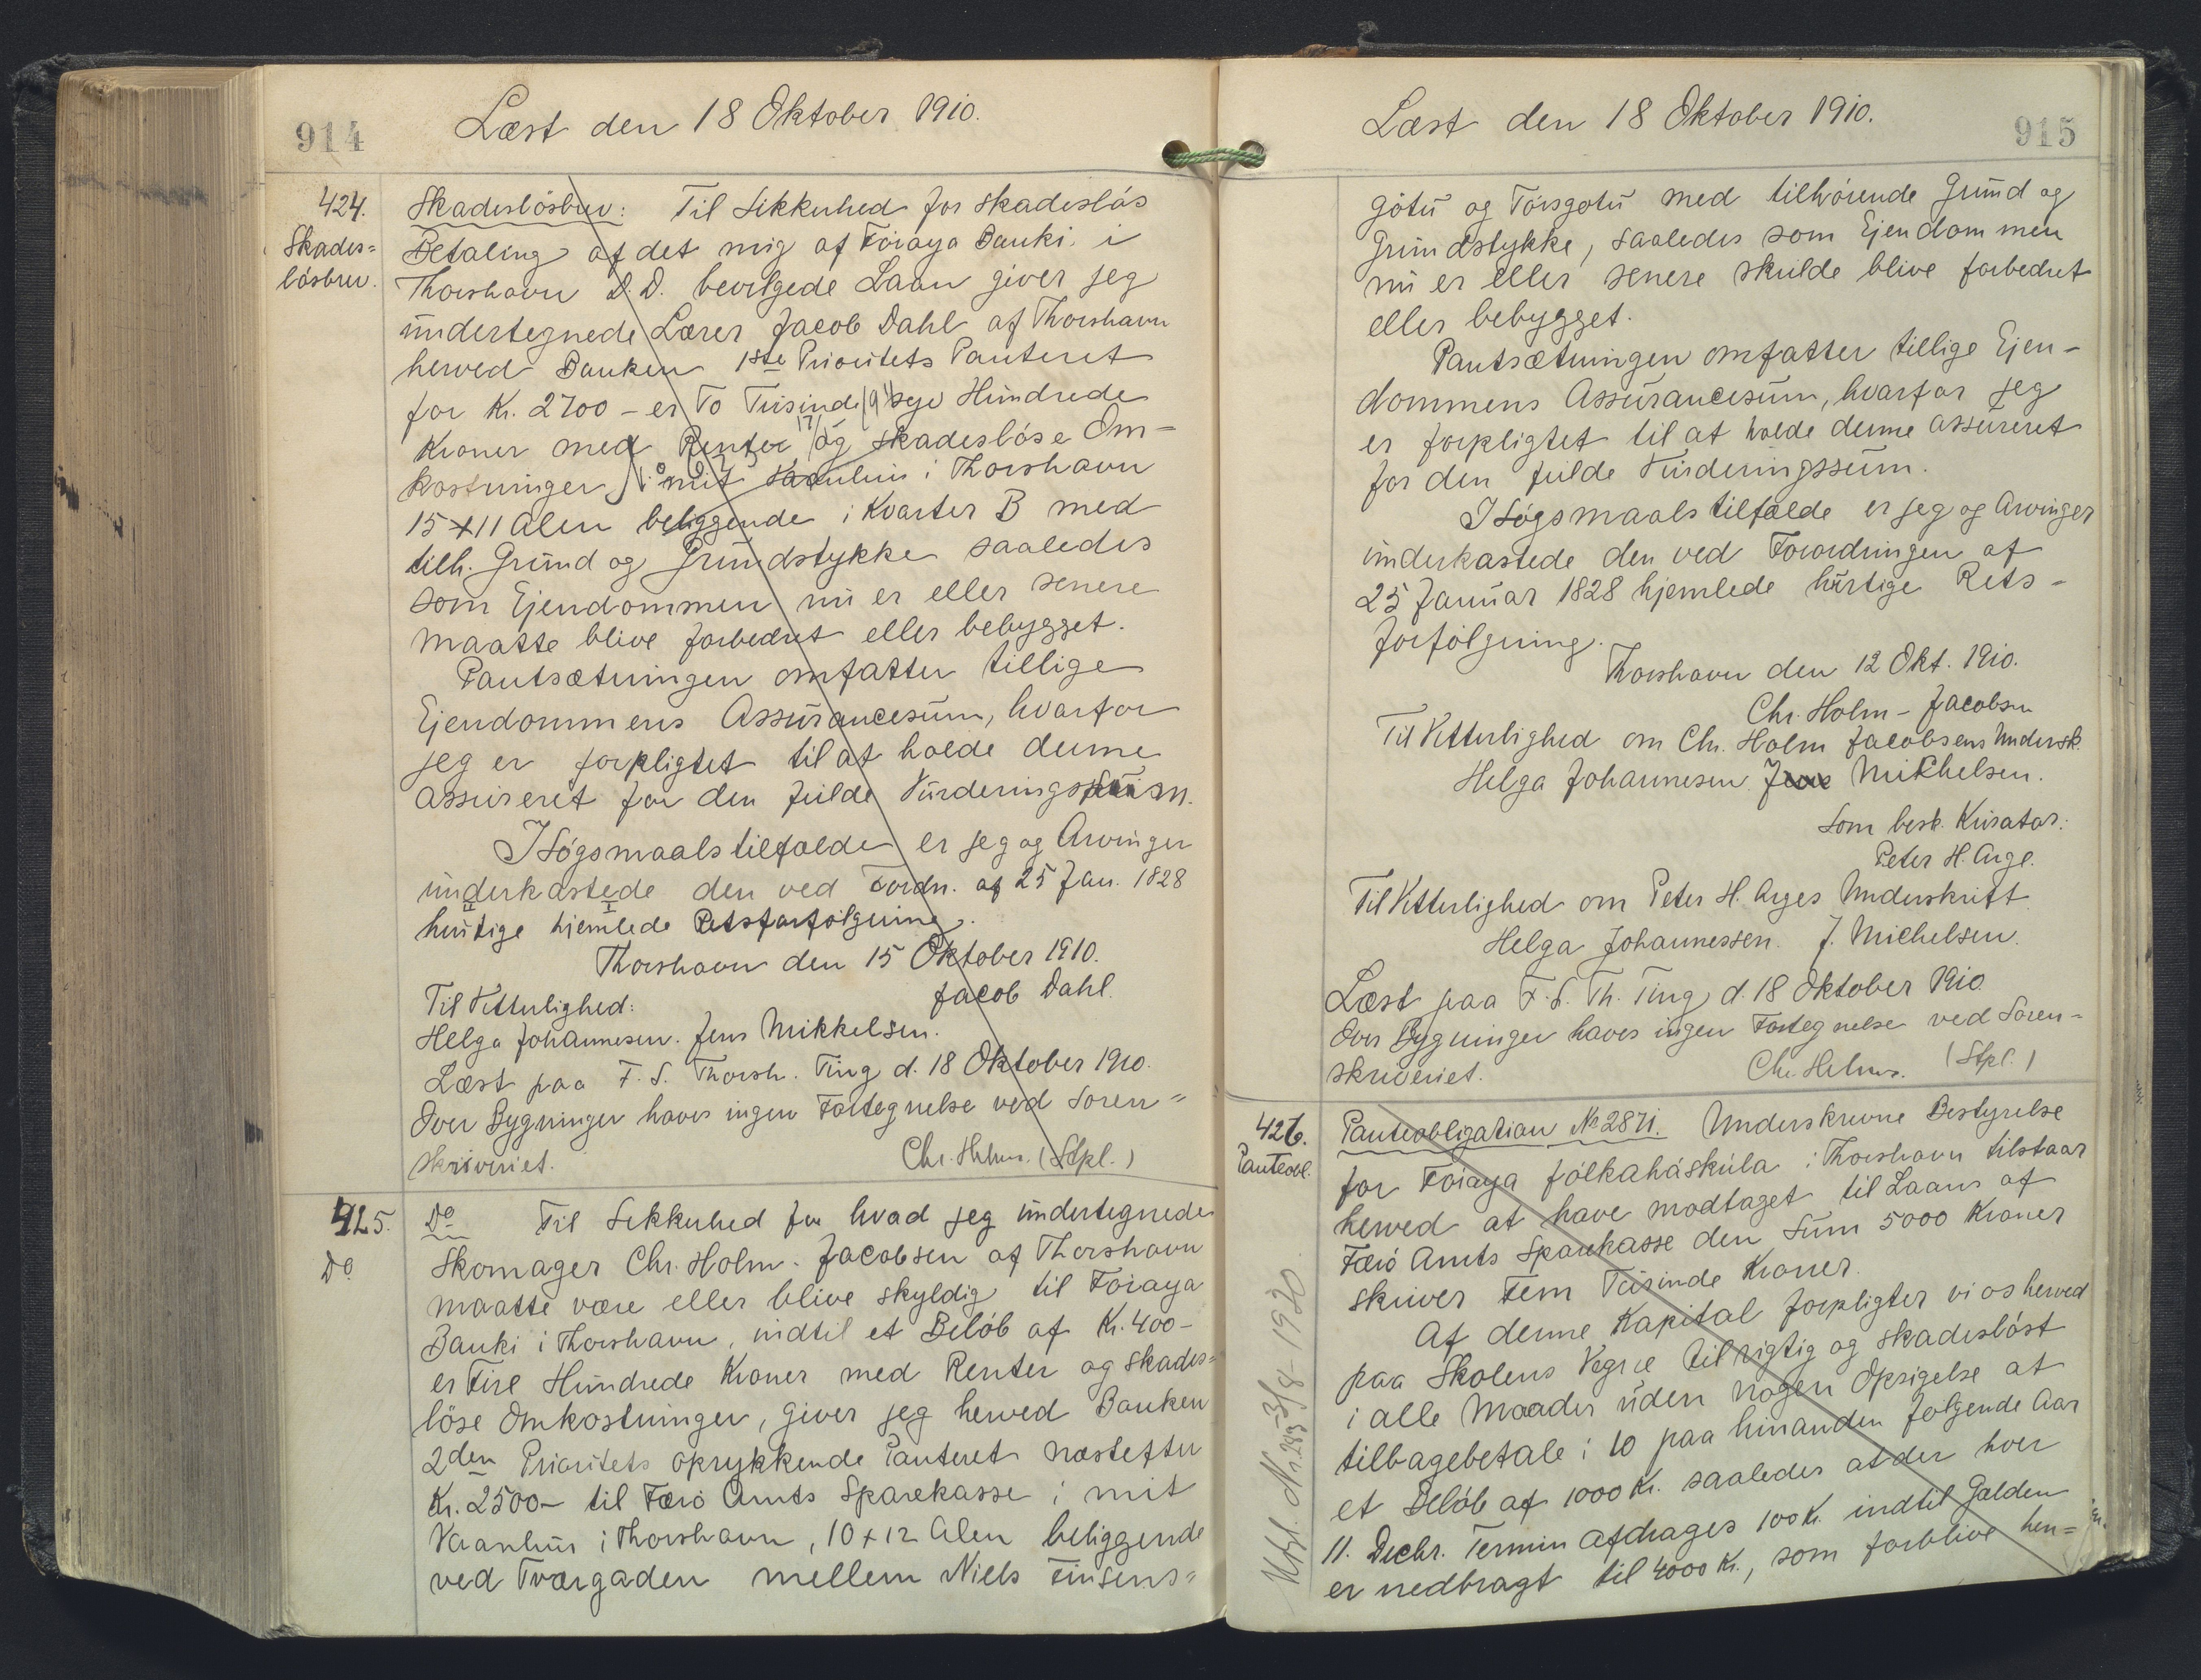 914
Læst den 18 Oktober 1910.
424.
Skades=
lösbrev.
Skadeslösbrev: Til Sikkerhed for skadeslös
Betaling af det mig af Föroya Banki i
Thorshavn D.D. bevilgede Laan giver jeg
undertegnede Lærer Jacob Dahl af Thorshavn
herved Banken 1ste Prioritets Panteret
for Kr. 2700 – er To Tusinde syv Hundrede
Kroner med Renter og skadeslöse Om-
kostninger i mit Vaanhus i Thorshavn
15 x 11 Alen beliggende i Kvarter B med
tilh. Grund og Grundstykke saaledes
som Ejendommen nu er eller senere
maatte blive forbedret eller bebygget.
Pantsætningen omfatter tillige
Ejendommens Assurancesum, hvorfor
jeg er forpligtet til at holde denne
assureret for den fulde Vurderingssum.
I Sögsmaalstilfælde er jeg og Arvinger
underkastede den ved Fordn. af 25 Jan. 1828
hurtige hjemlede Retsforfölgning.
Thorshavn den 15 Oktober 1910.
Jacob Dahl.
Til Vitterlighed:
Helga Johannesen. Jens Mikkelsen.
Læst paa F. S. Thorsh. Ting d. 18 Oktober 1910.
Over Bygninger haves ingen Fortegnelse ved Soren=
skriveriet.
Chr. Helms. (Stpl.)
425.
Do
Do Til Sikkerhed for hvad jeg undertegnede
Skomager Chr. Holm-Jacobsen af Thorshavn
maatte være eller blive skyldig til Föroya
Banki i Thorshavn, indtil et Belöb af Kr. 400–
er Fire Hundrede Kroner med Renter og skades=
löse Omkostninger, giver jeg herved Banken
2den Prioritets oprykkende Panteret næstefter
Kr. 2500– til Færö Amts Sparekasse i mit
Vaanhus i Thorshavn, 10 x 12 Alen beliggende
ved Tværgaden mellem Niels Finsens=
Læst den 18 Oktober 1910.
915
götu og Torsgotu med tilhörende Grund og
Grundstykke, saaledes som Ejendommen
nu er eller senere skulde blive forbedret
eller bebygget.
Pantsætningen omfatter tillige Ejen-
dommens Assurancesum, hvorfor jeg
er forpligtet til at holde denne assureret
for den fulde Vurderingssum.
I Sögsmaalstilfælde er jeg og Arvinger
underkastede den ved Forordningen af
25 Januar 1828 hjemlede hurtige Rets-
forfölgning.
Thorshavn den 12 Okt. 1910.
Chr. Holm-Jacobsen
Til Vitterlighed om Chr. Holm Jacobsens Undersk.
Helga Johannesen Mikhelsen.
Som besk. Kurator:
Peter H. Arge.
Til Vitterlighed om Peter H. Arges Underskrift
Helga Johannessen. J. Michelsen.
Læst paa F. S. Th. Ting d. 18 Oktober 1910
Over Bygninger haves ingen Fortegnelse ved Soren=
skriveriet.
Chr. Helms. (Stpl.)
426.
Panteobl.
Panteobligation No 2871. Underskrevne Bestyrelse
for Föroya fólkaháskúla i Thorshavn tilstaar
herved at have modtaget til Laans af
Færö Amts Sparekasse den Sum 5000 Kroner
skriver Fem Tusinde Kroner.
Af denne Kapital forpligter vi os herved
paa Skolens Vegne til rigtig og skadeslöst
i alle Maader uden nogen Opsigelse at
tilbagebetale i 10 paa hinanden fölgende Aar
et Belöb af 1000 Kr. saaledes at der hver
11. Decbr. Termin afdrages 100 Kr. indtil Gælden
er nedbragt til 4000 Kr., som forblive hen=
3/8 1920